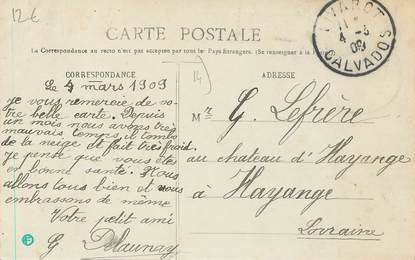 12€
CARTE POSTALE
La Correspondance au recto n'est pas acceptée par tous les Pays Etrangers. (Se renseigner à la
CORRESPONDANCE
ADRESSE
14
LIVAROT
4 -3
09
CALVADOS
Le 4 mars 1909
je vous remercie de vo-
tre belle carte. Depuis
un mois nous avons très
mauvais temps, il tombe
de la neige et fait très froid
je pense que vous êtes
en bonne santé. Nous
allons tous bien et vous
embrassons de même
Votre petit ami
G Delaunay
Mr G. Lefrère
au chateau d'Hayange
à Hayange
Lorraine